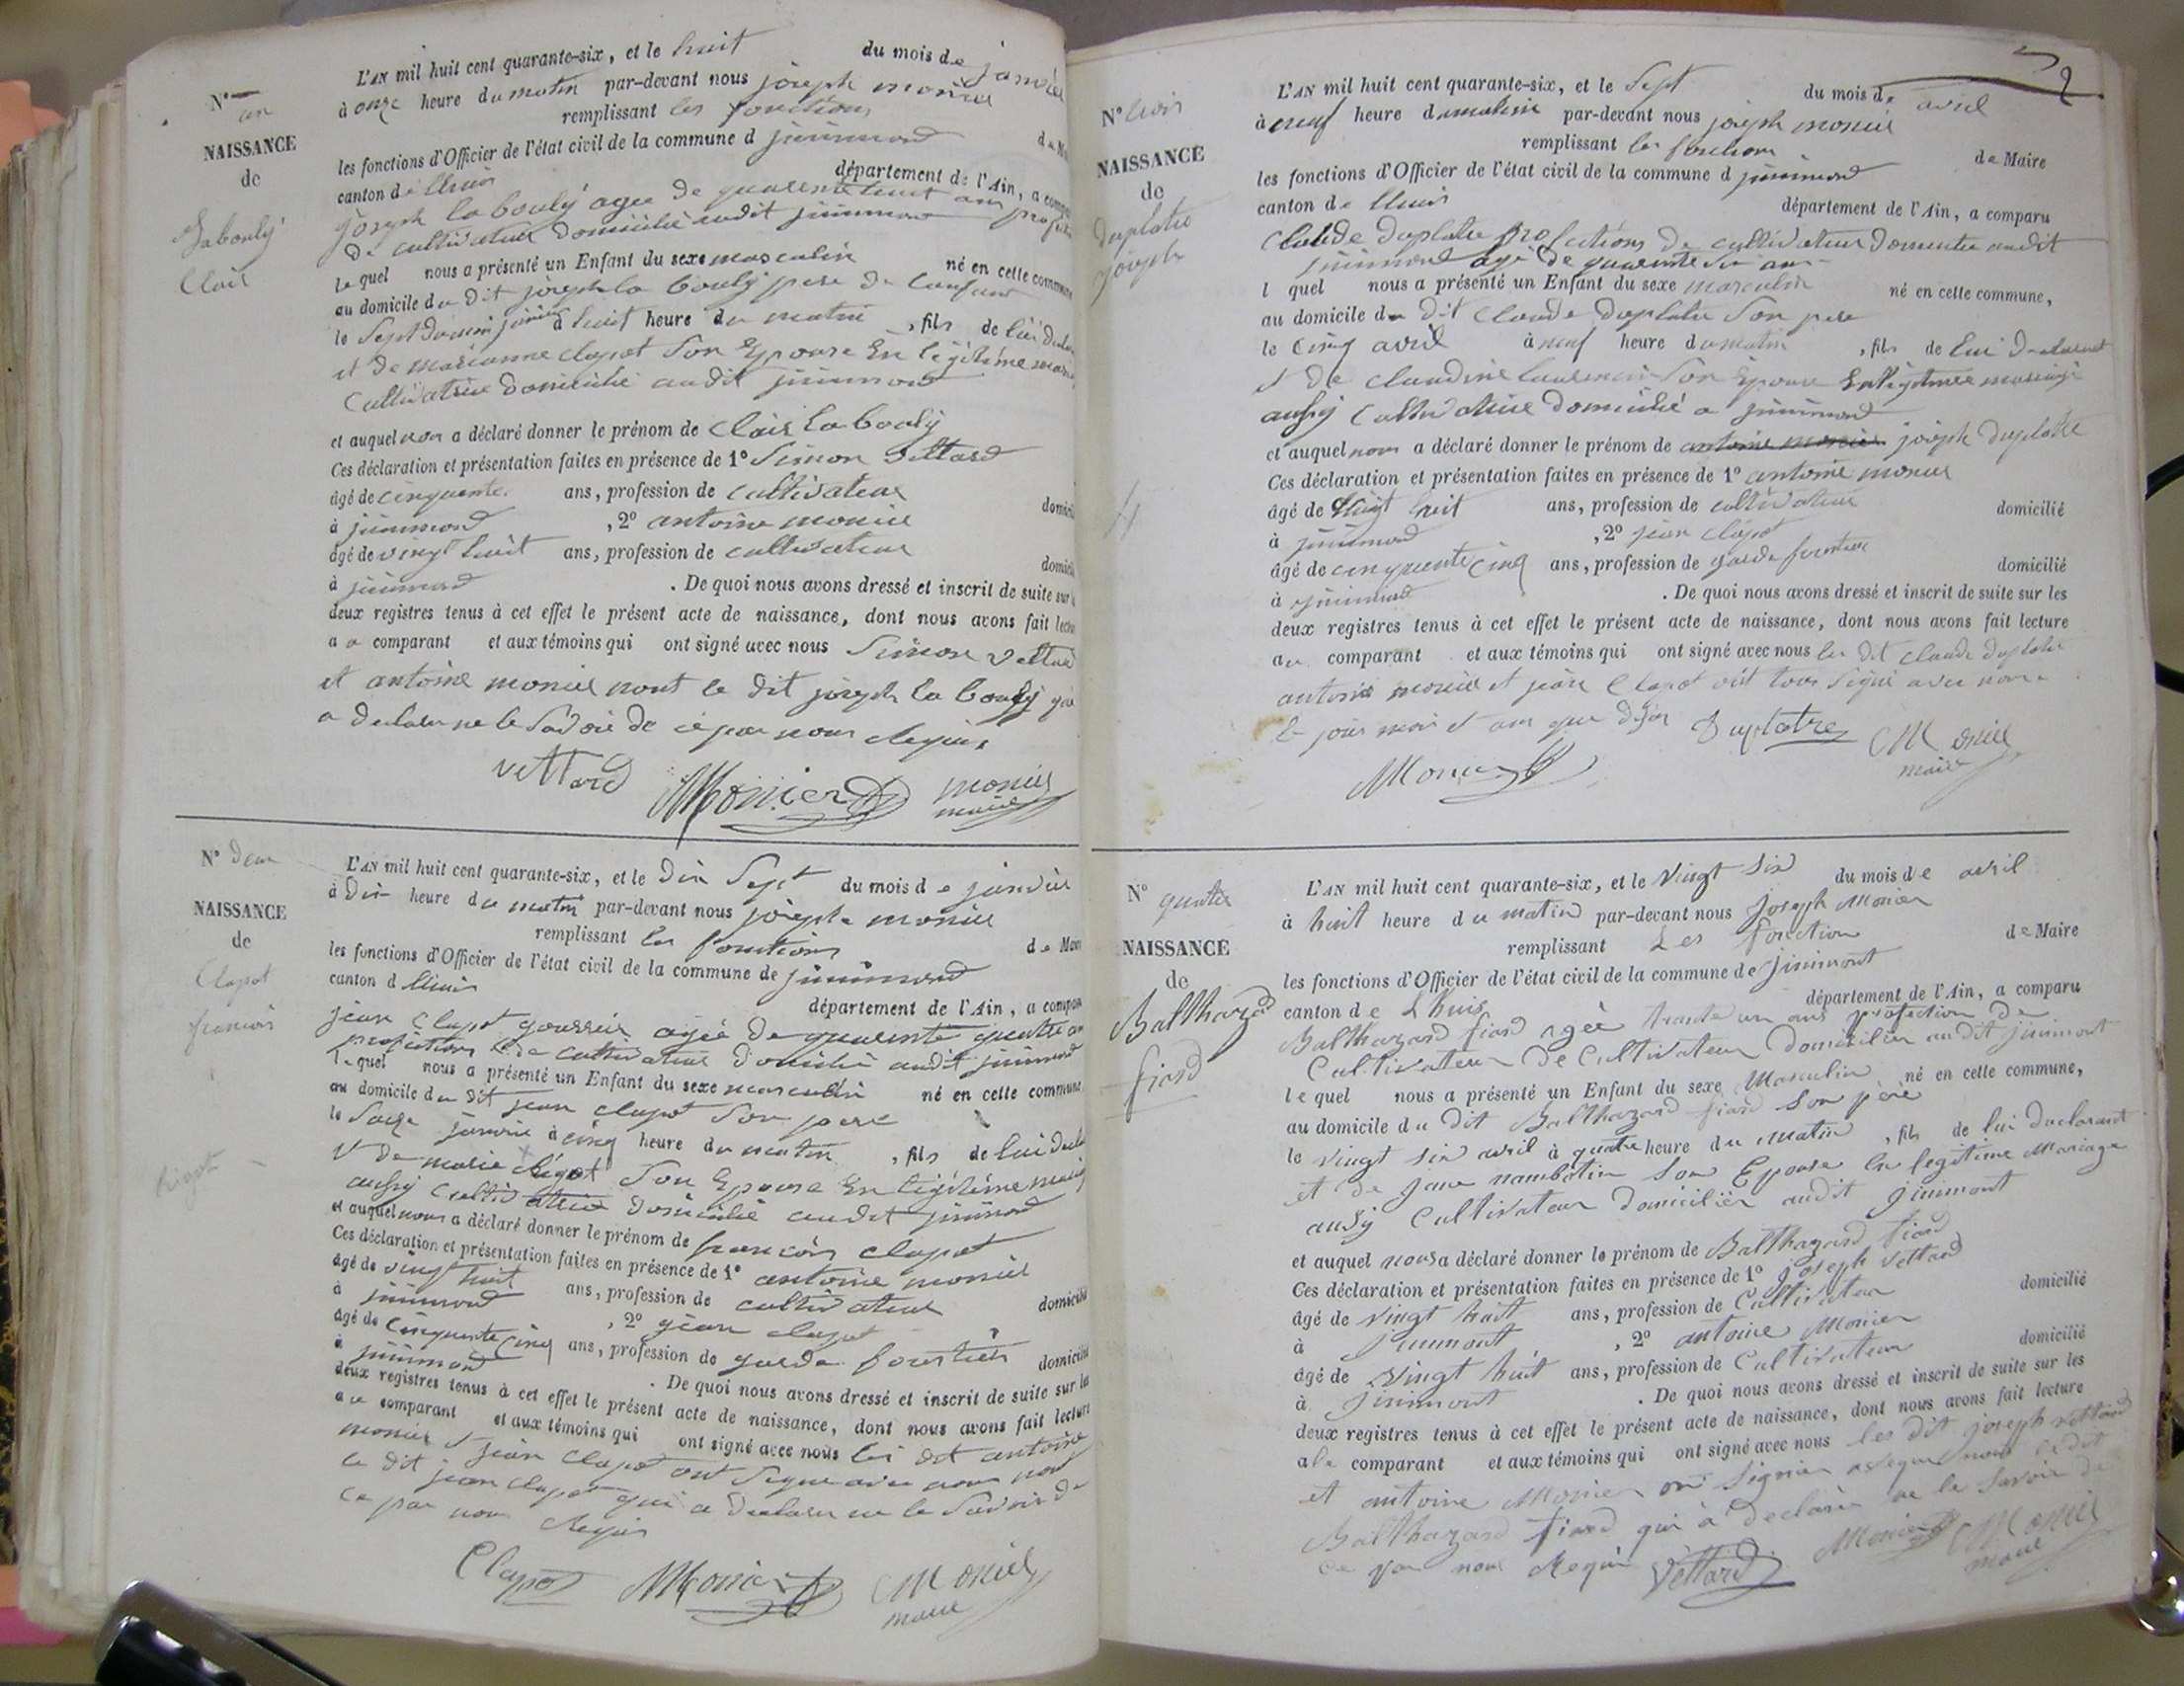 N° un
NAISSANCE
de
Labouly
Clair
L'AN mil huit cent quarante-six, et le huit du mois de janvier
à onze heure du matin par-devant nous joseph monier
remplissant les fonctions
les fonctions d'Officier de l'état civil de la commune d jininmond
canton de lhuis département de l'Ain, a comparu
joseph labouly agee de quarente huit ans
de cultivateur domicilie audit jininmond
le quel nous a présenté un Enfant du sexe masculin né en cette commune
au domicile du dit joseph la bouly pere de lenfant
le Sept à huit heure du matin, fils de lui
et de marianne clapot Son Epouse En legitime
Cultivatrice domicilié audit jininmond
et auquel nous a déclaré donner le prénom de Clair la bouly
Ces déclaration et présentation faites en présence de 1° Simon Vettard
âgé de cinquente ans, profession de cultivateur
à jininmond, 2° antoine monier
âgé de vingt huit ans, profession de cultivateur
à jininmond . De quoi nous avons dressé et inscrit de suite sur
deux registres tenus à cet effet le présent acte de naissance, dont nous avons fait lecture
au comparant et aux témoins qui ont signé avec nous Simon Vettard
et antoine monier nont le dit joseph la bouly qui
a declaré ne le Savoir de ce par nous Requis
Vettard Monier monier
maire
N° deux
NAISSANCE
de
Clapot
francois
L'AN mil huit cent quarante-six, et le dix Sept du mois de janvier
à dix heure du matin par-devant nous joseph monier
remplissant les fonctions
les fonctions d'Officier de l'état civil de la commune de jininmond
canton d lhuis département de l'Ain, a comparu
jean Clapot agée de quarente quattre ans
de cultivateur domicilié audit jininmond
le quel nous a présenté un Enfant du sexe masculin né en cette commune
au domicile du dit jean clapot Son pere
le janvier à cinq heure du matin, fils de lui
et de marie Son Epouse En legitime
aussy Cultivatrice domicilié audit jininmond
et auquel nous a déclaré donner le prénom de francois clapot
Ces déclaration et présentation faites en présence de 1° antoine monier
âgé de vingt huit ans, profession de cultivateur
à jininmond, 2° jean clapot
âgé de cinquente cinq ans, profession de garde forestier
à jininmond . De quoi nous avons dressé et inscrit de suite sur les
deux registres tenus à cet effet le présent acte de naissance, dont nous avons fait lecture
au comparant et aux témoins qui ont signé avec nous les dit antoine
monier et jean clapot ont Signe avec nous nont
le dit jean clapot qui a declaré ne le Savoir de
ce par nous Requis
Clapot Monier Monier
maire
N° trois
NAISSANCE
de
duplatre
joseph
L'AN mil huit cent quarante-six, et le Sept du mois de avril
à neuf heure du matin par-devant nous joseph monier
remplissant les fonctions de Maire
les fonctions d'Officier de l'état civil de la commune d jininmond
canton de lhuis département de l'Ain, a comparu
Claude duplatre de cultivateur domicilié audit
jininmond agé de quarente six ans
l quel nous a présenté un Enfant du sexe masculin né en cette commune,
au domicile du dit Claude duplatre Son pere
le cinq avril à neuf heure du matin, fils de lui declarant
et de claudine Son Epouse En legitime mariage
aussy Cultivatrice domicilié a jininmond
et auquel nous a déclaré donner le prénom de antoine monier joseph duplatre
Ces déclaration et présentation faites en présence de 1° antoine monier
âgé de vingt huit ans, profession de cultivateur domicilié
à jininmond, 2° jean clapot
âgé de cinquente cinq ans, profession de garde forestier domicilié
à jininmond . De quoi nous avons dressé et inscrit de suite sur les
deux registres tenus à cet effet le présent acte de naissance, dont nous avons fait lecture
au comparant et aux témoins qui ont signé avec nous les dit claude duplatre
antoine monier et jean Clapot ont tous Signé avec nous
le jour mois et an que Duplatre Monier
maire
Monier
N° quatre
NAISSANCE
de
Balthazard
fiard
L'AN mil huit cent quarante-six, et le vingt six du mois de avril
à huit heure du matin par-devant nous joseph Monier
remplissant Les fonction de Maire
les fonctions d'Officier de l'état civil de la commune de jinimont
canton de Lhuis département de l'Ain, a comparu
Balthazard fiard agèe trante un ans profection de
Cultivateur de Cultivateur Domicilier audit jinimont
le quel nous a présenté un Enfant du sexe Masculin né en cette commune,
au domicile du dit Balthazard fiard son père
le vingt six avril à quatre heure du matin, fils de lui declarant
et de jane nambotin Son Epouse En legitime Mariage
ausy Cultivateur domicilier audit jinimont
et auquel nous a déclaré donner le prénom de Balthazard fiard
Ces déclaration et présentation faites en présence de 1° joseph vettard
âgé de vingt huit ans, profession de Cultivateur domicilié
à jinimont, 2° antoine Monier
âgé de vingt huit ans, profession de Cultivateur domicilié
à jinimont . De quoi nous avons dressé et inscrit de suite sur les
deux registres tenus à cet effet le présent acte de naissance, dont nous avons fait lecture
ale comparant et aux témoins qui ont signé avec nous les dit joseph vettard
et antoine Monier on Signier ledit
Balthazard fiard qui à declarèr ne le Savoir de
ce par nous Requi Vettard Monier Monier
maire